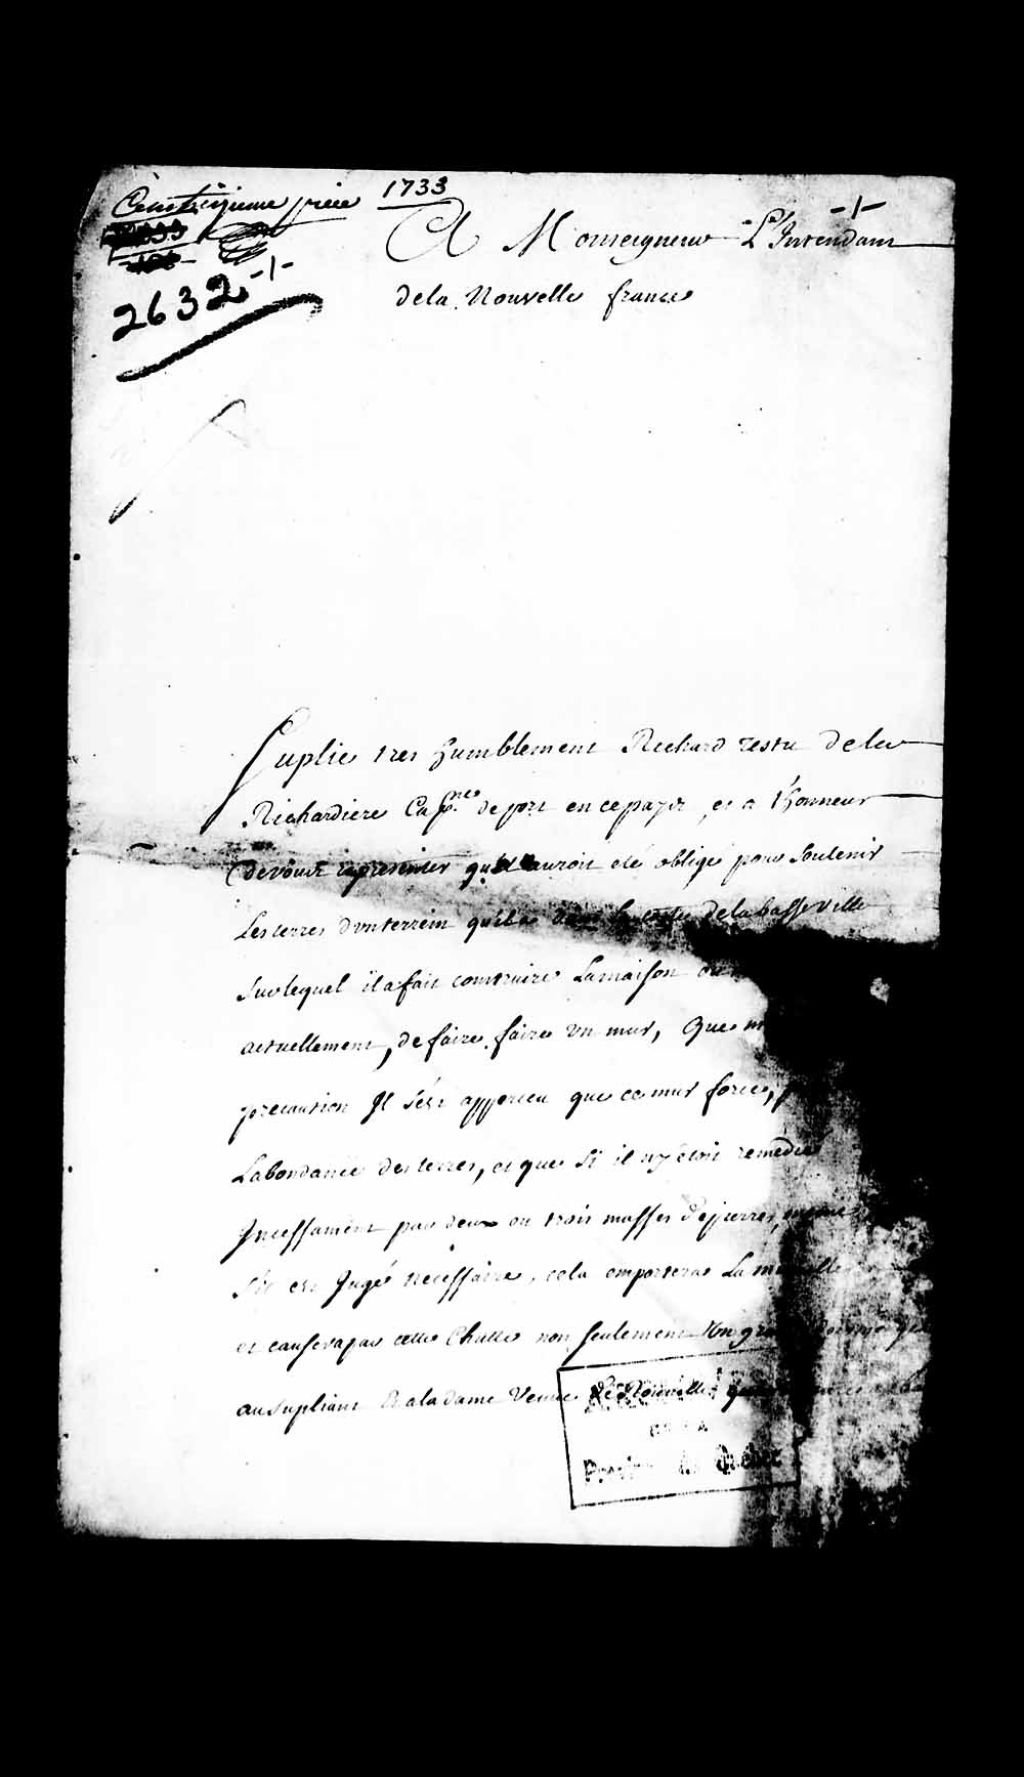 1733
-/-
A Monseigneur L'Intendant
dela Nouvelle france
piece
2632 -/-
Suplie tres humblement Richard testu dela
Richardiere Cap.ne de port en ce païs, et a l'honneur
devous representer qu'il auroit eté obligé pour Soutenir
Les terres d'un terrein qu'il a dans la dela basse ville
Sur lequel il a fait construire La maison ou
actuellement, de faire faire un mur, Que
precaution Il s'est apperceu que ce mur force,
Labondance des terres, et que Si il n'y étoit remedié
Incessament par deux ou trois masses de pierres,
S'il est Jugé necessaire, cela emportera La muraille
et causera par cette Chutte non Seulement Un
au supliant & a la dame Veuve
Quebec